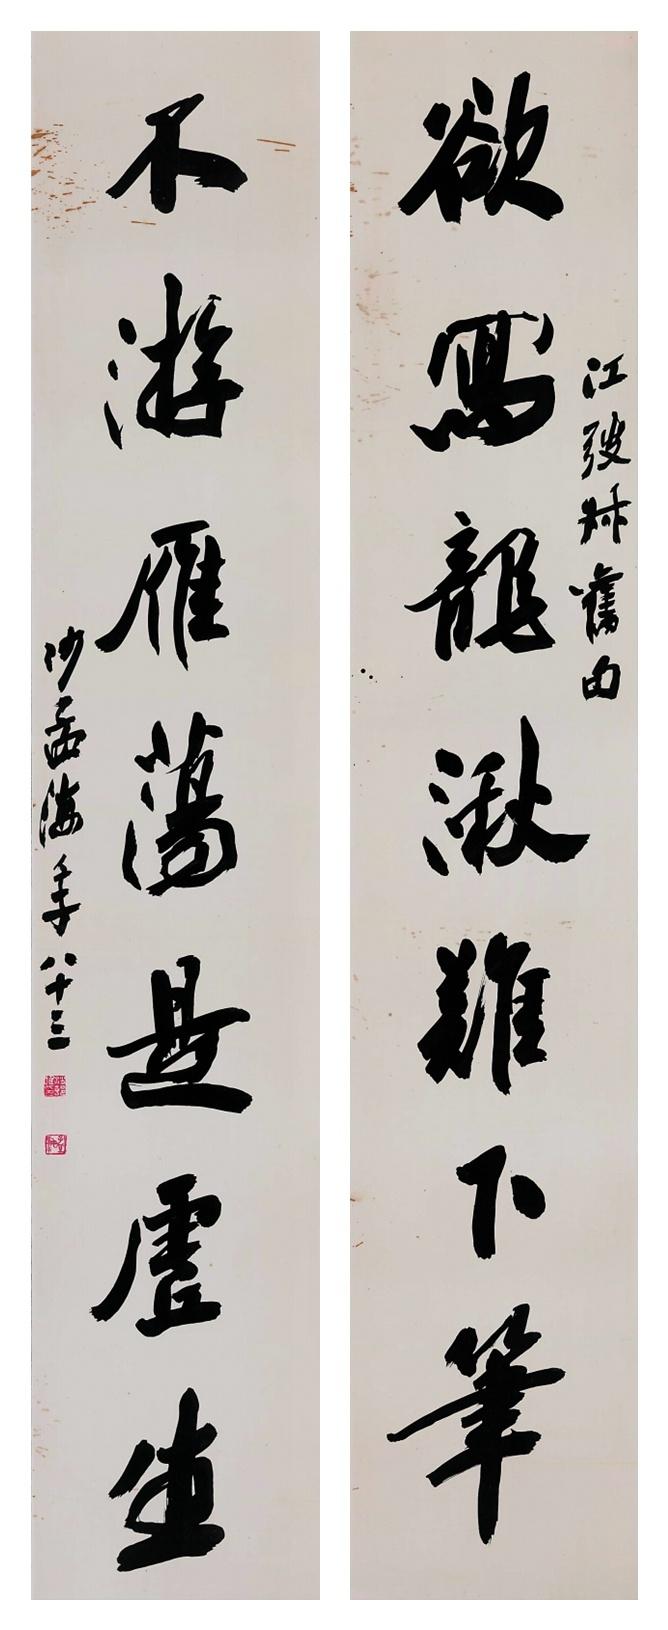 欲寫龍湫難下筆
江弢叔舊句
不游雁蕩是虛生
沙孟海年八十三